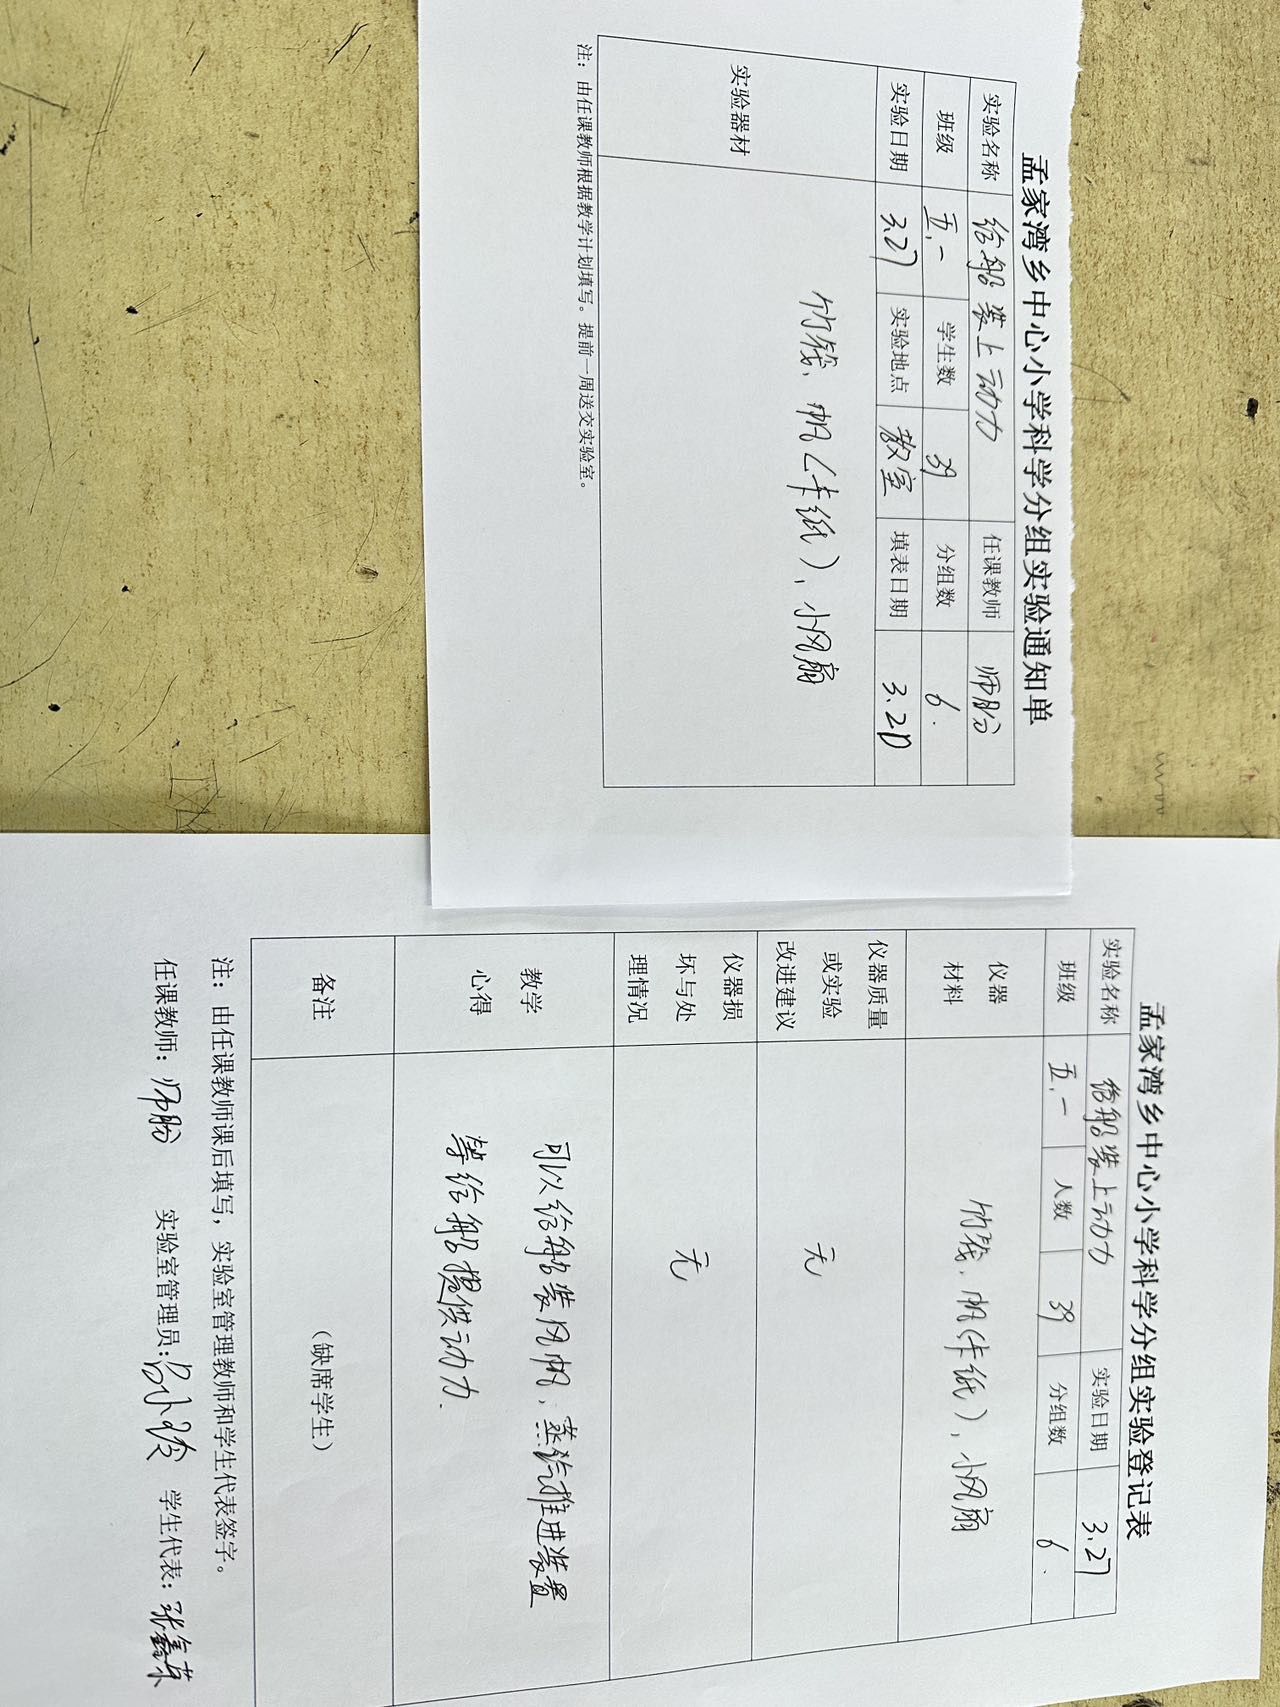 孟家湾乡中心小学科学分组实验通知单
实验名称 给船装上动力 任课教师 师盼
班级 五.一 学生数 39 分组数 6.
实验日期 3.27 实验地点 教室 填表日期 3.20
实验器材 竹筏、帆(卡纸)、小风扇
注：由任课教师根据教学计划填写。提前一周送交实验室。
孟家湾乡中心小学科学分组实验登记表
实验名称 给船装上动力 实验日期 3.27
班级 五.一 人数 39 分组数 6.
仪器
材料
竹筏、帆(卡纸)、小风扇
仪器质量
或实验
改进建议
无
仪器损
坏与处
理情况
无
教学
心得
可以给船装风帆、蒸汽推进装置
等给船提供动力.
备注 （缺席学生）
注：由任课教师课后填写，实验室管理教师和学生代表签字。
任课教师：师盼 实验室管理员： 学生代表：张鑫